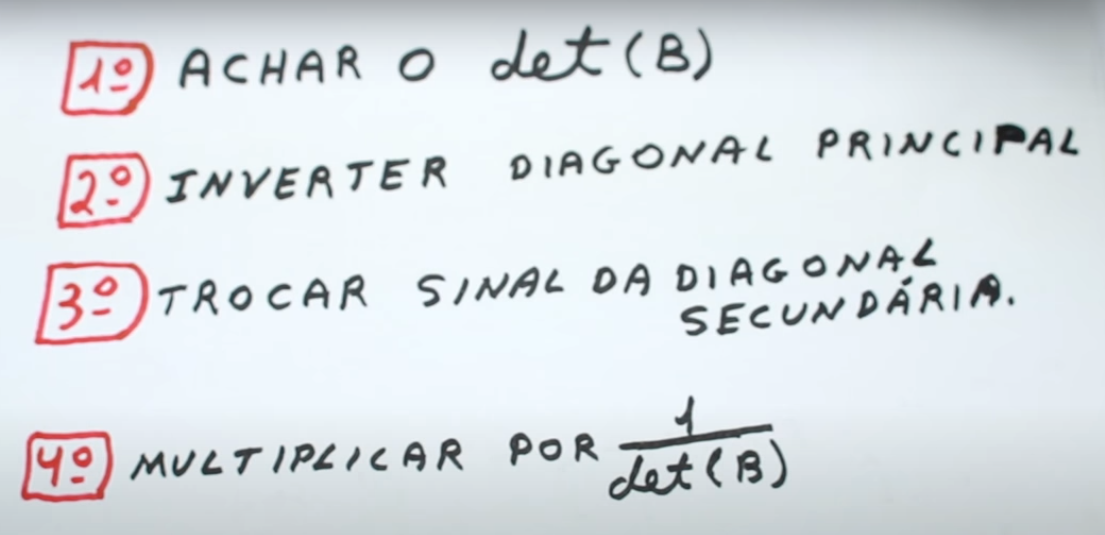 1º ACHAR O det(B)
2º INVERTER DIAGONAL PRINCIPAL
3º TROCAR SINAL DA DIAGONAL
SECUNDÁRIA.
4º MULTIPLICAR POR 1/det(B)